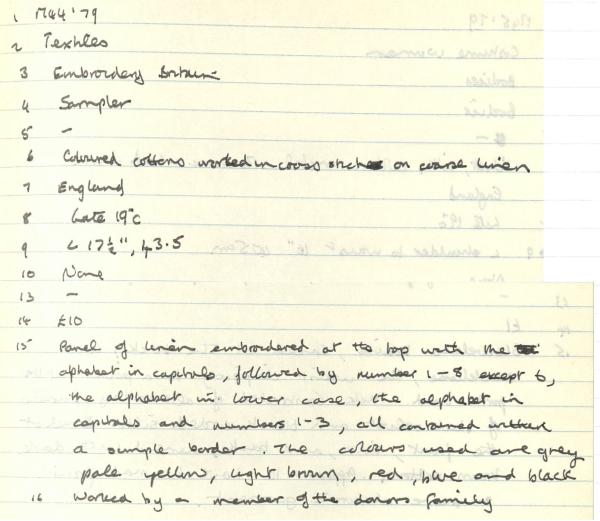 1 M44 '79
2 Textiles
3 Embroidery Britain
4 Sampler
5 –
6 Coloured cottons worked in cross stitches on coarse linen
7 England
8 Late 19c
9 L 17½", 43.5
10 None
13 –
14 £10
15 Panel of linen embroidered at the top with the
alphabet in capitals, followed by number 1–8 except 6,
the alphabet in lower case, the alphabet in
capitals and numbers 1–3, all contained within
a simple border. The colours used are grey
pale yellow, light brown, red, blue and black
16 Worked by a member of the donors family